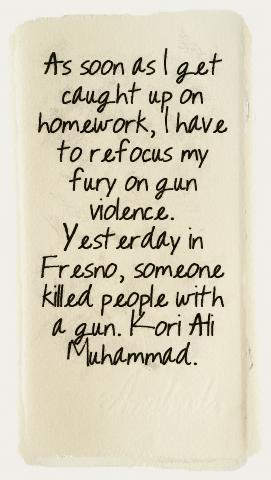 As soon as I get
caught up on
homework, I have
to refocus my
fury on gun
violence.
Yesterday in
Fresno, someone
killed people with
a gun. Kori Ali
Muhammad.